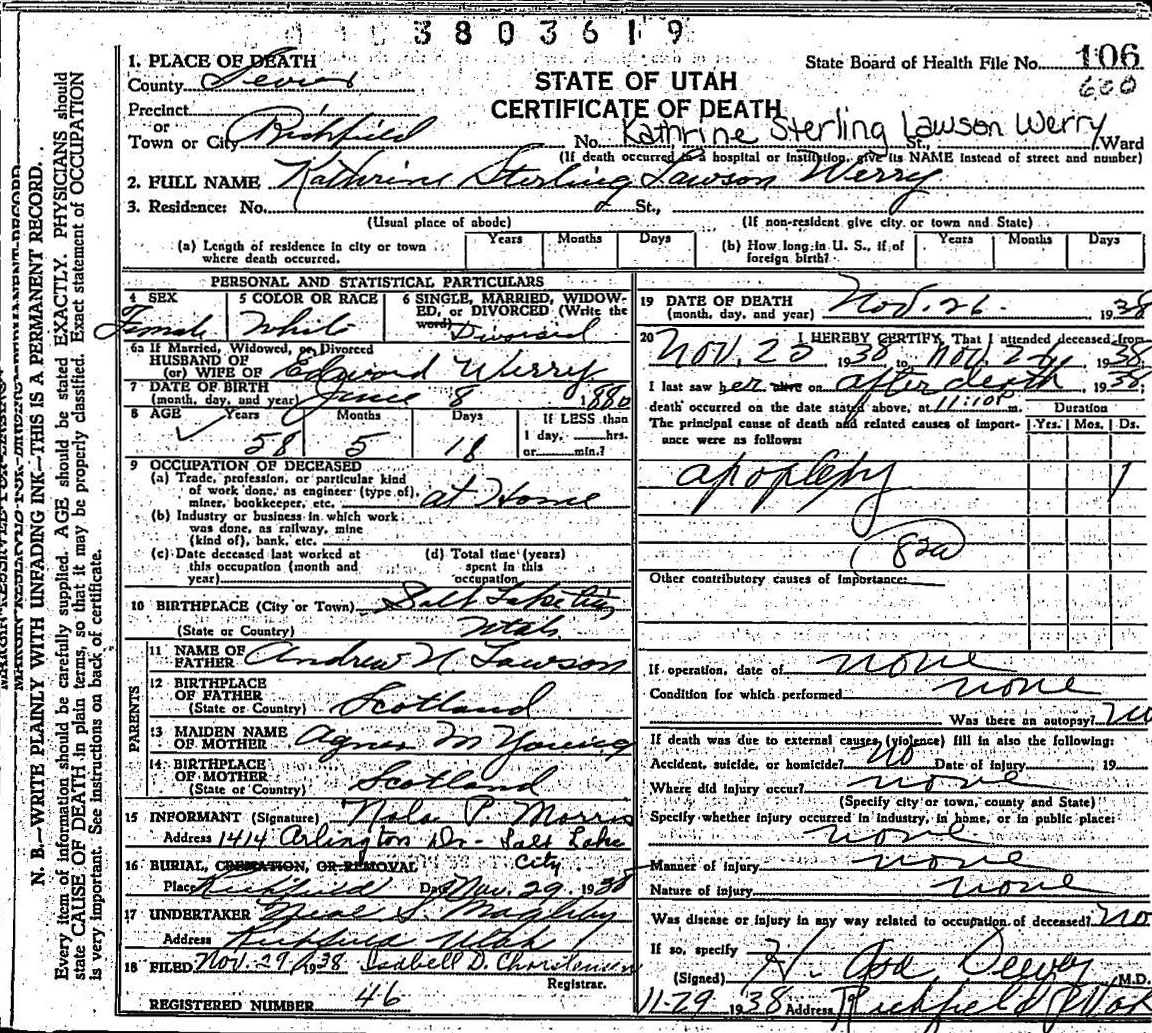 3803619
1. PLACE OF DEATH
County Sevier
Precinct
or
Town or City Richfield
STATE OF UTAH
CERTIFICATE OF DEATH
State Board of Health File No. 106
600
No. Kathrine Sterling Lawson Werry St., Ward
(If death occurred in a hospital or institution, give its NAME instead of street and number)
2. FULL NAME Kathrine Sterling Lawson Werry
3. Residence: No. St.,
(Usual place of abode) (If non-resident give city or town and State)
(a) Length of residence in city or town where death occurred. Years Months Days
(b) How long in U. S., if of foreign birth? Years Months Days
PERSONAL AND STATISTICAL PARTICULARS
4 SEX 5 COLOR OR RACE 6 SINGLE, MARRIED, WIDOWED, or DIVORCED (Write the word)
Female White Divorced
6a If Married, Widowed, or Divorced
HUSBAND OF
(or) WIFE OF Edward Werry
7 DATE OF BIRTH
(month, day, and year) June 8 1880
8 AGE Years Months Days If LESS than
1 day, hrs.
or min.?
58 5 18
9 OCCUPATION OF DECEASED
(a) Trade, profession, or particular kind
of work done, as engineer (type of),
miner, bookkeeper, etc. at Home
(b) Industry or business in which work
was done, as railway, mine
(kind of), bank, etc.
(c) Date deceased last worked at
this occupation (month and
year)
(d) Total time (years)
spent in this
occupation
10 BIRTHPLACE (City or Town) Salt Lake City
(State or Country) Utah
PARENTS
11 NAME OF
FATHER Andrew N. Lawson
12 BIRTHPLACE
OF FATHER
(State or Country) Scotland
13 MAIDEN NAME
OF MOTHER Agnes M Young
14 BIRTHPLACE
OF MOTHER
(State or Country) Scotland
15 INFORMANT (Signature) Nola P. Morris
Address 1414 Arlington Dr - Salt Lake
City
16 BURIAL, CREMATION, OR REMOVAL
Place Richfield Date Nov. 29 1938
17 UNDERTAKER S. Magleby
Address Richfield Utah
18 FILED Nov. 29 1938 Isabell D. Christensen
Registrar.
REGISTERED NUMBER 46
19 DATE OF DEATH
(month, day, and year) Nov. 26 1938
20 I HEREBY CERTIFY, That I attended deceased from
Nov. 1938 to Nov. 1938
I last saw her alive on after death 1938;
death occurred on the date stated above, at 11:10 P m.
The principal cause of death and related causes of importance were as follows:
Duration
Yrs. Mos. Ds.
apoplexy 1
82a
Other contributory causes of importance:
If operation, date of none
Condition for which performed none
Was there an autopsy? no
If death was due to external causes (violence) fill in also the following:
Accident, suicide, or homicide? no Date of injury 19
Where did injury occur? none
(Specify city or town, county and State)
Specify whether injury occurred in industry, in home, or in public place:
none
Manner of injury none
Nature of injury none
Was disease or injury in any way related to occupation of deceased? no
If so, specify
(Signed) H. Dewey M.D.
11-29 1938 Address Richfield Utah
N. B.—WRITE PLAINLY WITH UNFADING INK—THIS IS A PERMANENT RECORD.
Every item of information should be carefully supplied. AGE should be stated EXACTLY. PHYSICIANS should
state CAUSE OF DEATH in plain terms, so that it may be properly classified. Exact statement of OCCUPATION
is very important. See instructions on back of certificate.